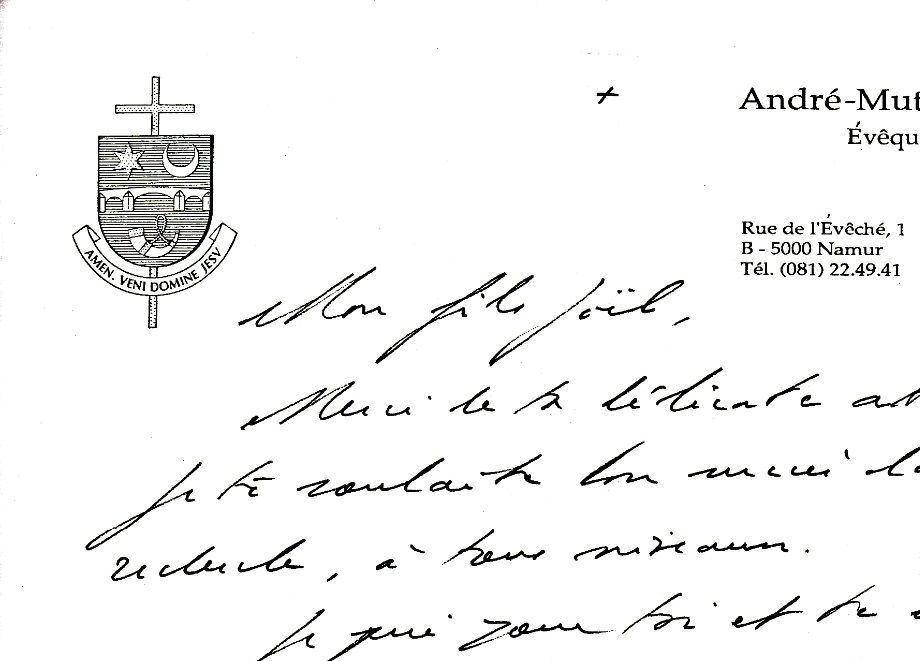 +
André-Mut
Évêqu
Rue de l'Évêché, 1
B - 5000 Namur
Tél. (081) 22.49.41
AMEN. VENI DOMINE JESV
Mon fils Joël,
Merci de ta délicate att
Je te souhaite bon succès da
recherche, à tous niveaux.
Je prie pour toi et te